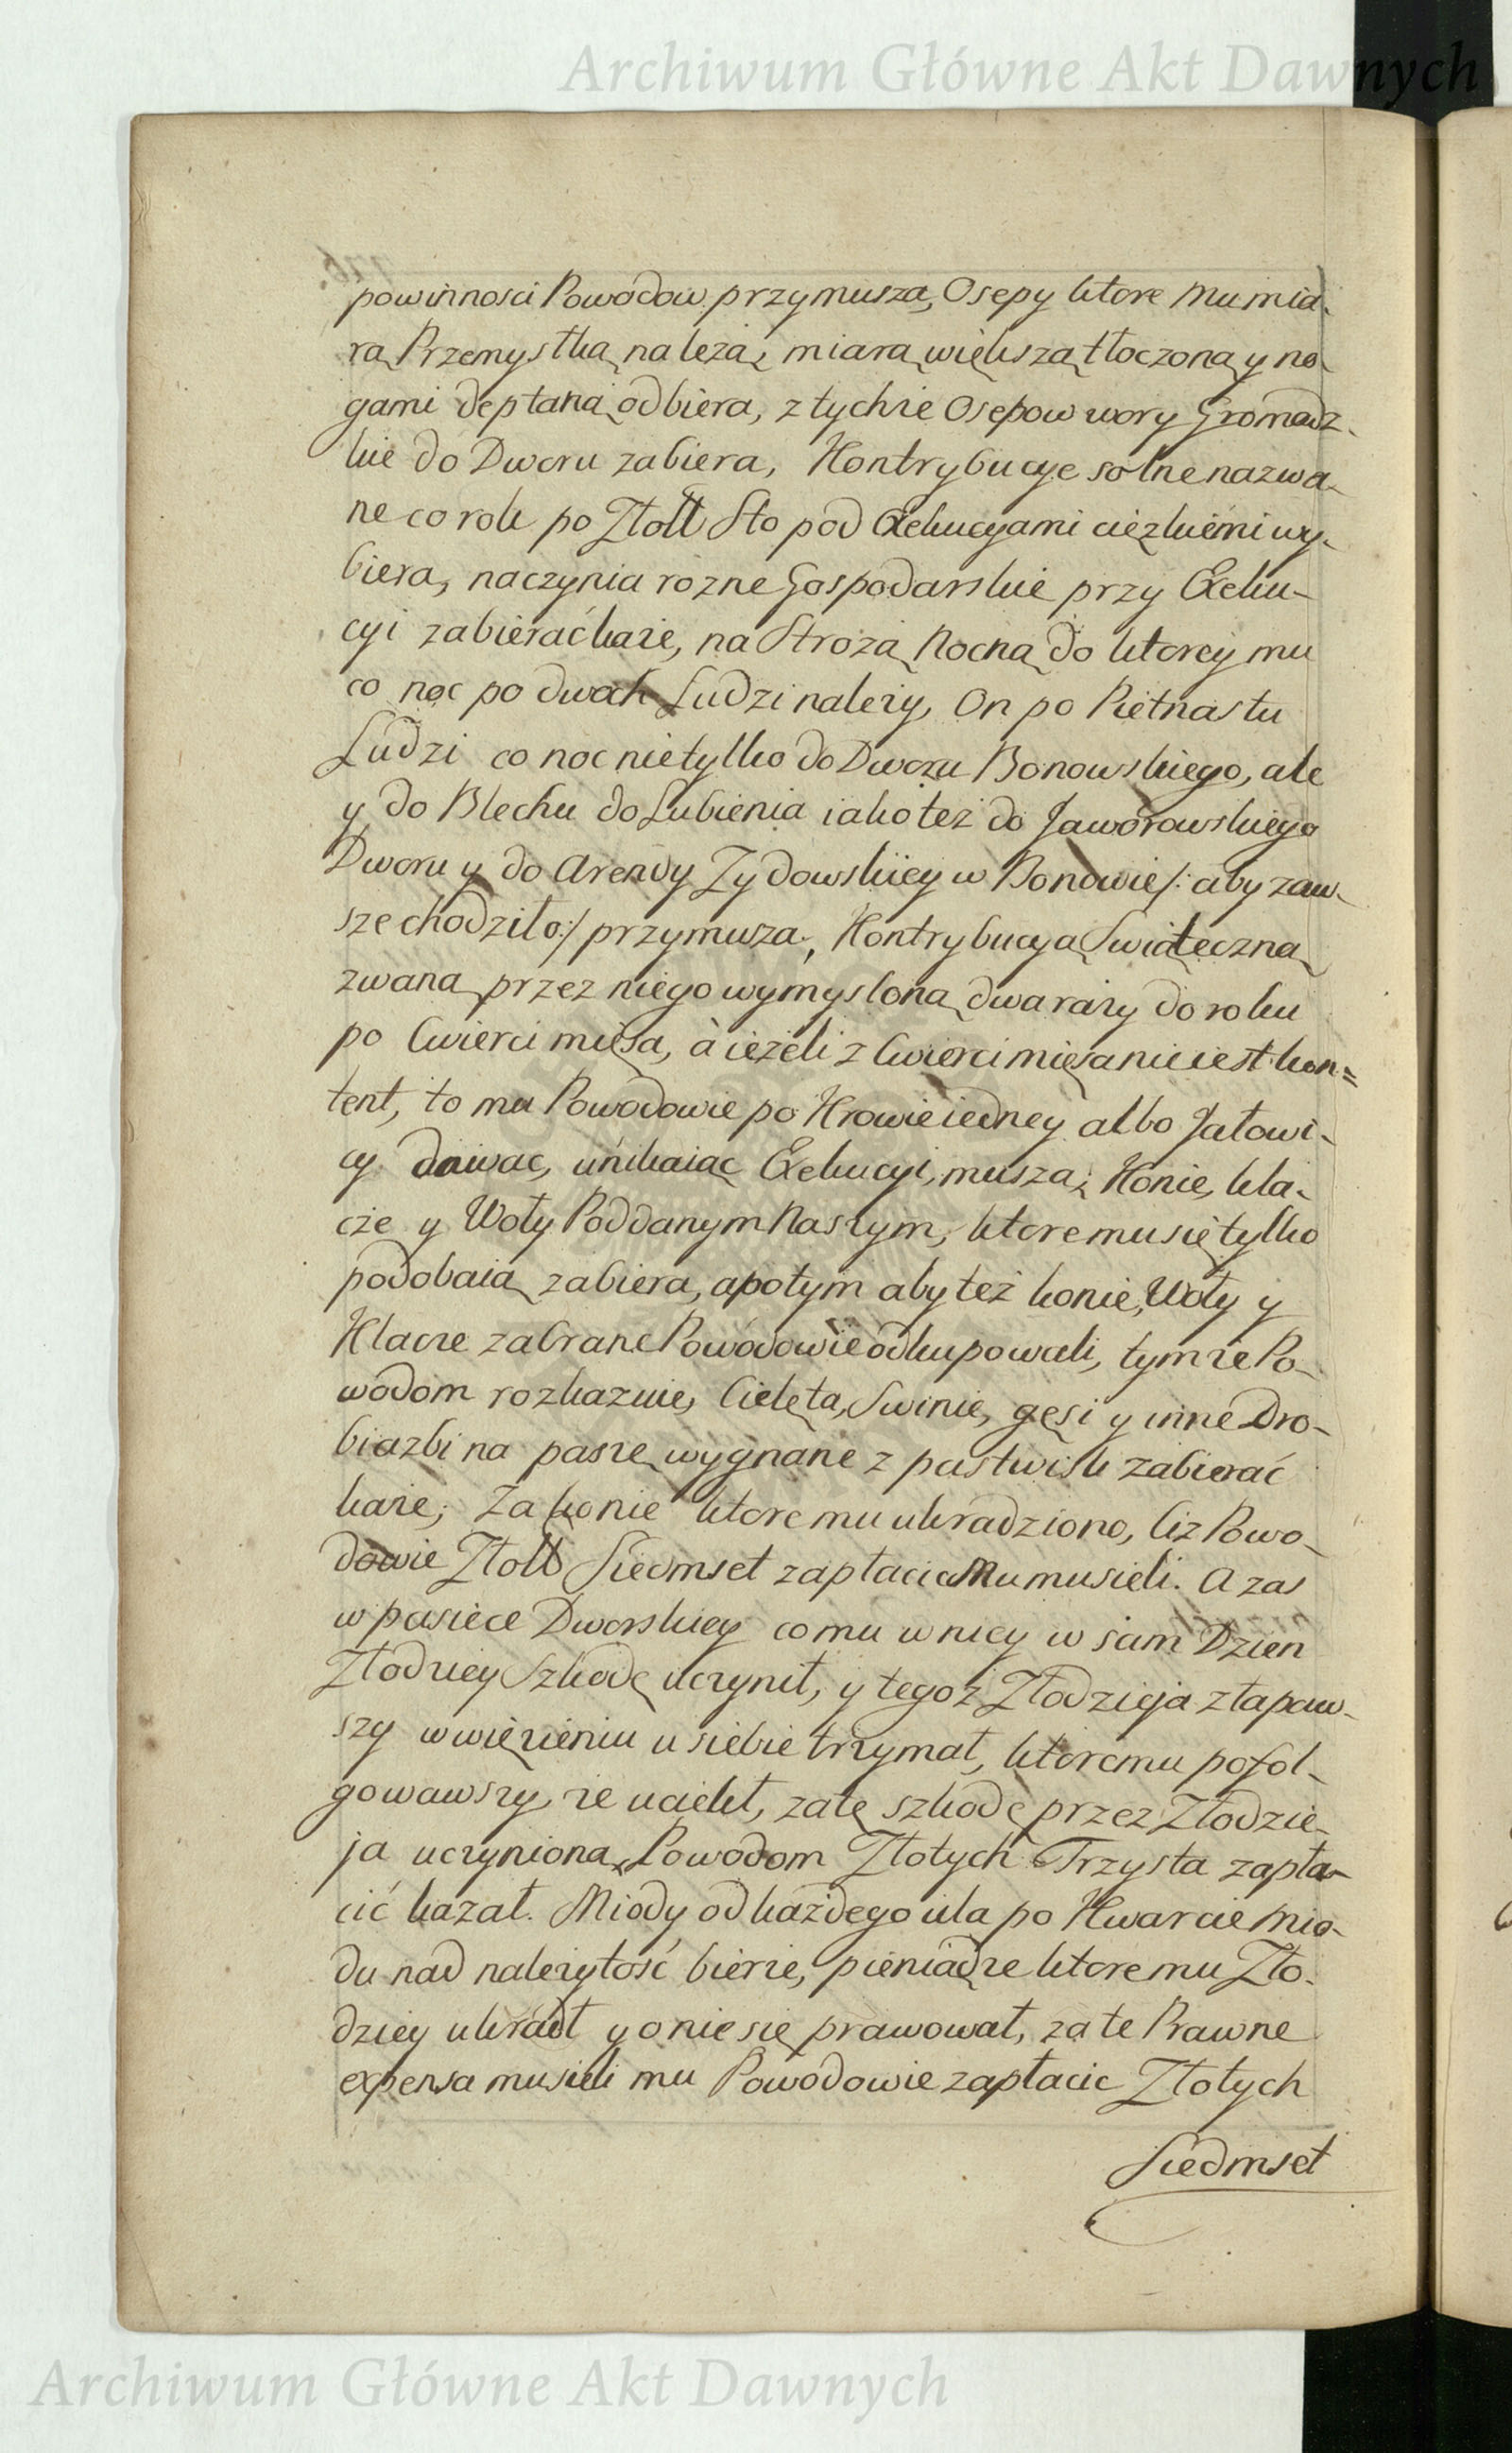 Archiwum Główne Akt Dawnych
powinnosci Powodow przymusza, Osepy ktore Mu mia-
rą Przemyską należą, miarą większą tłoczoną y no-
gami deptaną odbiera, z tychże Osepow wory Gromadz-
kie do Dworu zabiera, Kontrybucye solne nazwa-
ne co rok po Złott Sto pod Exekucyami ciezkiemi wy-
biera, naczynia rozne Gospodarskie przy Exeku-
cyi zabierać każe, na Strożą Nocną do ktorey mu
co noc po dwoch Ludzi należy, On po Piętnastu
Ludzi co noc nie tylko do Dworu Bonowskiego, ale
y do Blechu do Lubienia iako też do Jaworowskiego
Dworu y do Arendy Zydowskiey w Bonowie /: aby zaw-
sze chodziło :/ przymusza, Kontrybucya Swiąteczną
zwaną przez niego wymysloną dwa razy do roku
po Cwierci mięsa, à ieżeli z Cwierci mięsa nie iest kon=
tent, to mu Powodowie po Krowie iedney albo Jałowi-
cy dawac, unikaiąc Exekucyi, muszą; Konie, kla-
cze y Woły Poddanym Naszym, ktore mu się tylko
podobaią zabiera, a potym aby też konie, Woły y
Klacze zabrane Powodowie odkupowali, tymże Po-
wodom rozkazuie, Cielęta, Swinie, gęsi y inne Dro-
biazbi na paszę wygnane z pastwisk zabierać
każe; Za konie ktore mu ukradziono, Ciz Powo-
dowie Złott Siedmset zapłacic Mu musieli. A zas
w pasiece Dworskiey co mu w niey w sam Dzien
Złodziey Szkodę uczynił, y tegoż Złodzieja złapaw-
szy w więzieniu u siebie trzymał, ktoremu pofol-
gowawszy, że uciekł, za tę szkodę przez Złodzie-
ja uczynioną Powodom Złotych Trzysta zapła-
cić kazał. Miody od każdego ula po Kwarcie Mio-
du nad należytość bierze, pieniądze ktore mu Zło-
dziey ukradł y o nie się prawował, za te Prawne
expensa musieli mu Powodowie zapłacic Złotych
Siedmset
Archiwum Główne Akt Dawnych